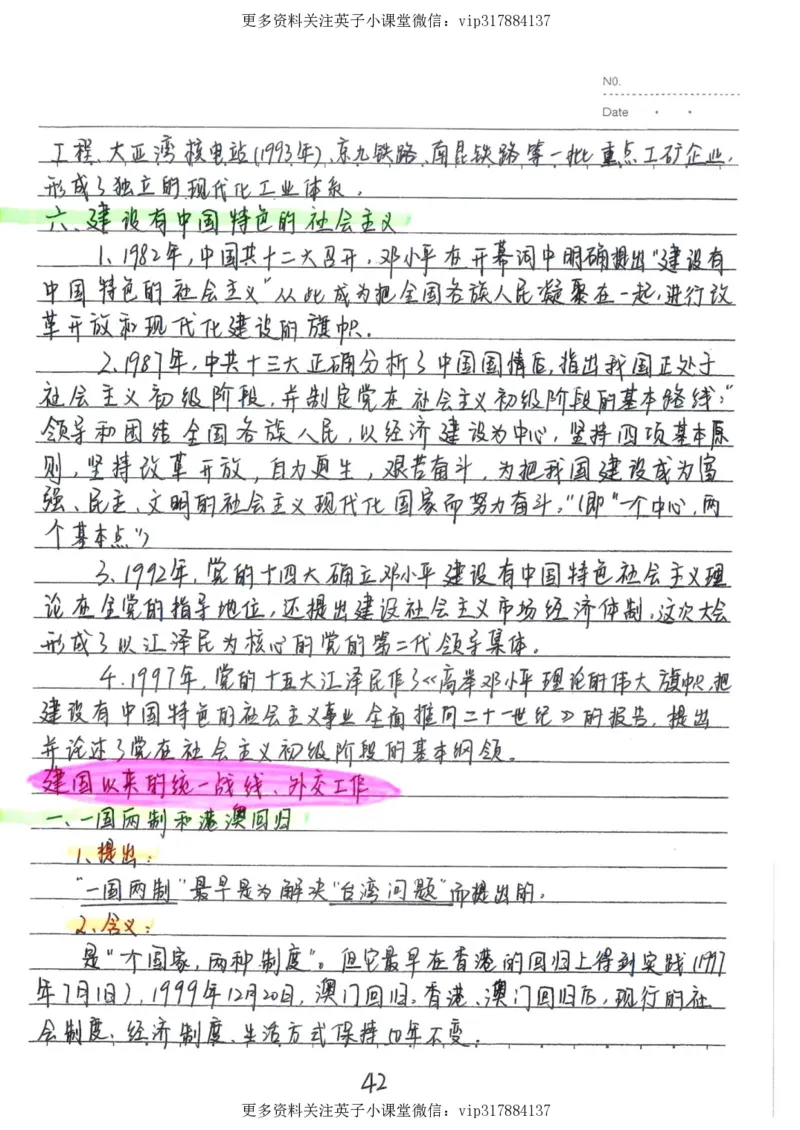 更多资料关注英子小课堂微信：vip317884137
N0.
Date
工程、大亚湾核电站(1993年)、京九铁路、南昆铁路等一批重点工矿企业，
形成了独立的现代化工业体系。
六、建设有中国特色的社会主义
1、1982年，中国共十二大召开，邓小平在开幕词中明确提出"建设有
中国特色的社会主义"从此成为把全国各族人民凝聚在一起，进行改
革开放和现代化建设的旗帜。
2、1987年，中共十三大正确分析了中国国情后，指出我国正处于
社会主义初级阶段，并制定党在社会主义初级阶段的基本路线："
领导和团结全国各族人民，以经济建设为中心，坚持四项基本原
则，坚持改革开放，自力更生，艰苦奋斗，为把我国建设成为富
强、民主、文明的社会主义现代化国家而努力奋斗。"(即"一个中心，两
个基本点")
3、1992年，党的十四大确立邓小平建设有中国特色社会主义理
论在全党的指导地位，还提出建设社会主义市场经济体制，这次大会
形成了以江泽民为核心的党的第二代领导集体。
4、1997年，党的十五大江泽民作了《高举邓小平理论的伟大旗帜，把
建设有中国特色的社会主义事业全面推向二十一世纪》的报告，提出
并论述了党在社会主义初级阶段的基本纲领。
建国以来的统一战线、外交工作
一、一国两制和港澳回归
1、提出：
"一国两制"最早是为解决"台湾问题"而提出的。
2、含义：
是"一个国家，两种制度"。但它最早在香港的回归上得到实践(1997
年7月1日)，1999年12月20日，澳门回归。香港、澳门回归后，现行的社
会制度、经济制度、生活方式保持50年不变。
42
更多资料关注英子小课堂微信：vip317884137